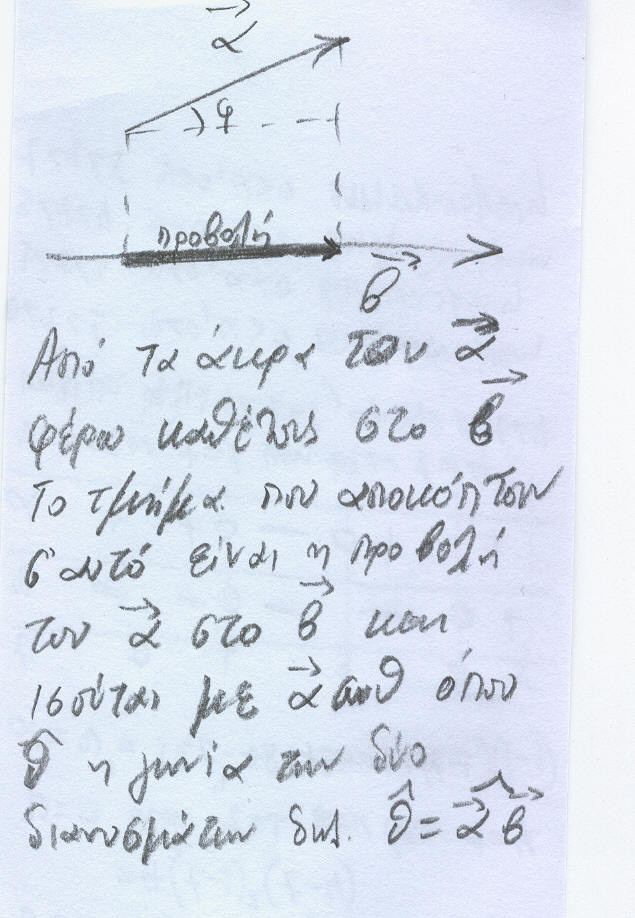 α⃗
φ
προβολή
β⃗
Από τα άκρα του α⃗
φέρω καθέτους στο β⃗
Το τμήμα που αποκόπτουν
σ'αυτό είναι η προβολή
του α⃗ στο β⃗ και
ισούται με α⃗ συνθ όπου
θ̂ η γωνία των δύο
διανυσμάτων δηλ. θ̂ = α⃗ ̂ β⃗